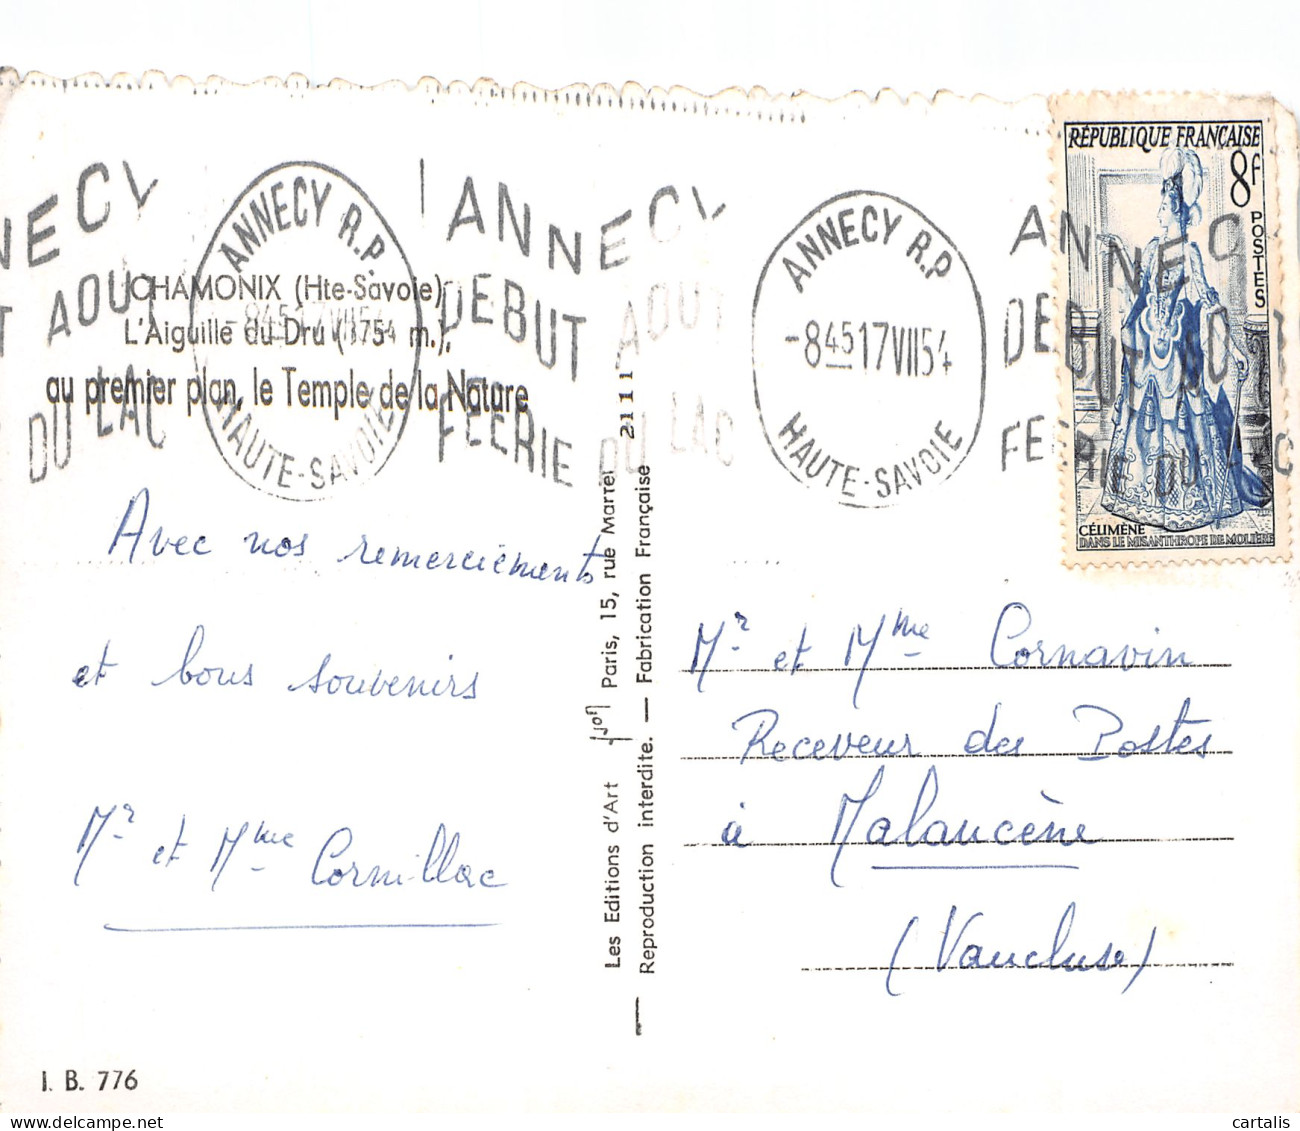 RÉPUBLIQUE FRANÇAISE
8f
POSTES
CÉLIMÈNE
DANS LE MISANTHROPE DE MOLIÈRE
ANNECY
DEBUT AOUT
FEERIE DU LAC
ANNECY R.P.
-845 17 VII 54
HAUTE-SAVOIE
ANNECY
DEBUT AOUT
FEERIE DU LAC
ANNECY R.P.
-845 17 VII 54
HAUTE-SAVOIE
CHAMONIX (Hte-Savoie)
L'Aiguille du Dru (3754 m.),
au premier plan, le Temple de la Nature
Avec nos remerciements
et bons souvenirs
Mr et Mme Cornillac
Les Editions d'Art Yvon Paris, 15, rue Martel 2111
Reproduction interdite. — Fabrication Française
Mr et Mme Cornavin
Receveur des Postes
à Malaucène
(Vaucluse)
I. B. 776
cartalis